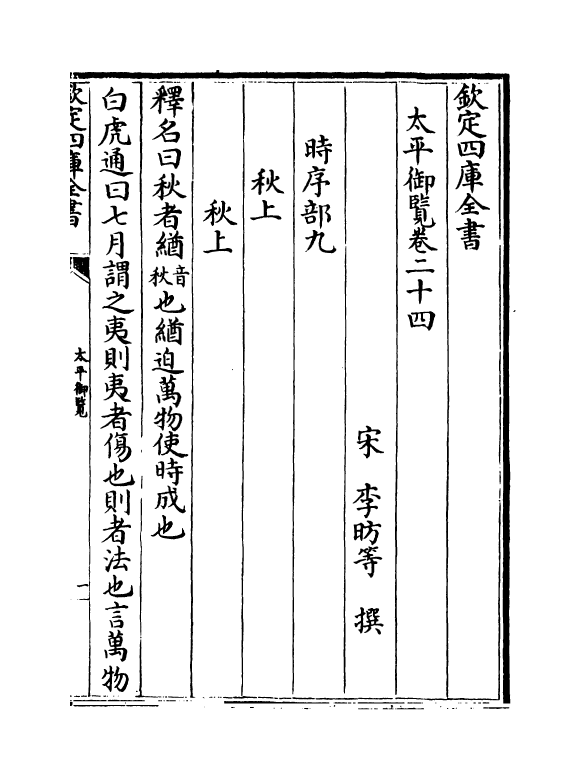 欽定四庫全書
太平御覽卷二十四
宋 李昉等 撰
時序部九
秋上
秋上
釋名曰秋者緧音秋也緧迫萬物使時成也
白虎通曰七月謂之夷則夷者傷也則者法也言萬物
欽定四庫全書
太平御覽
一